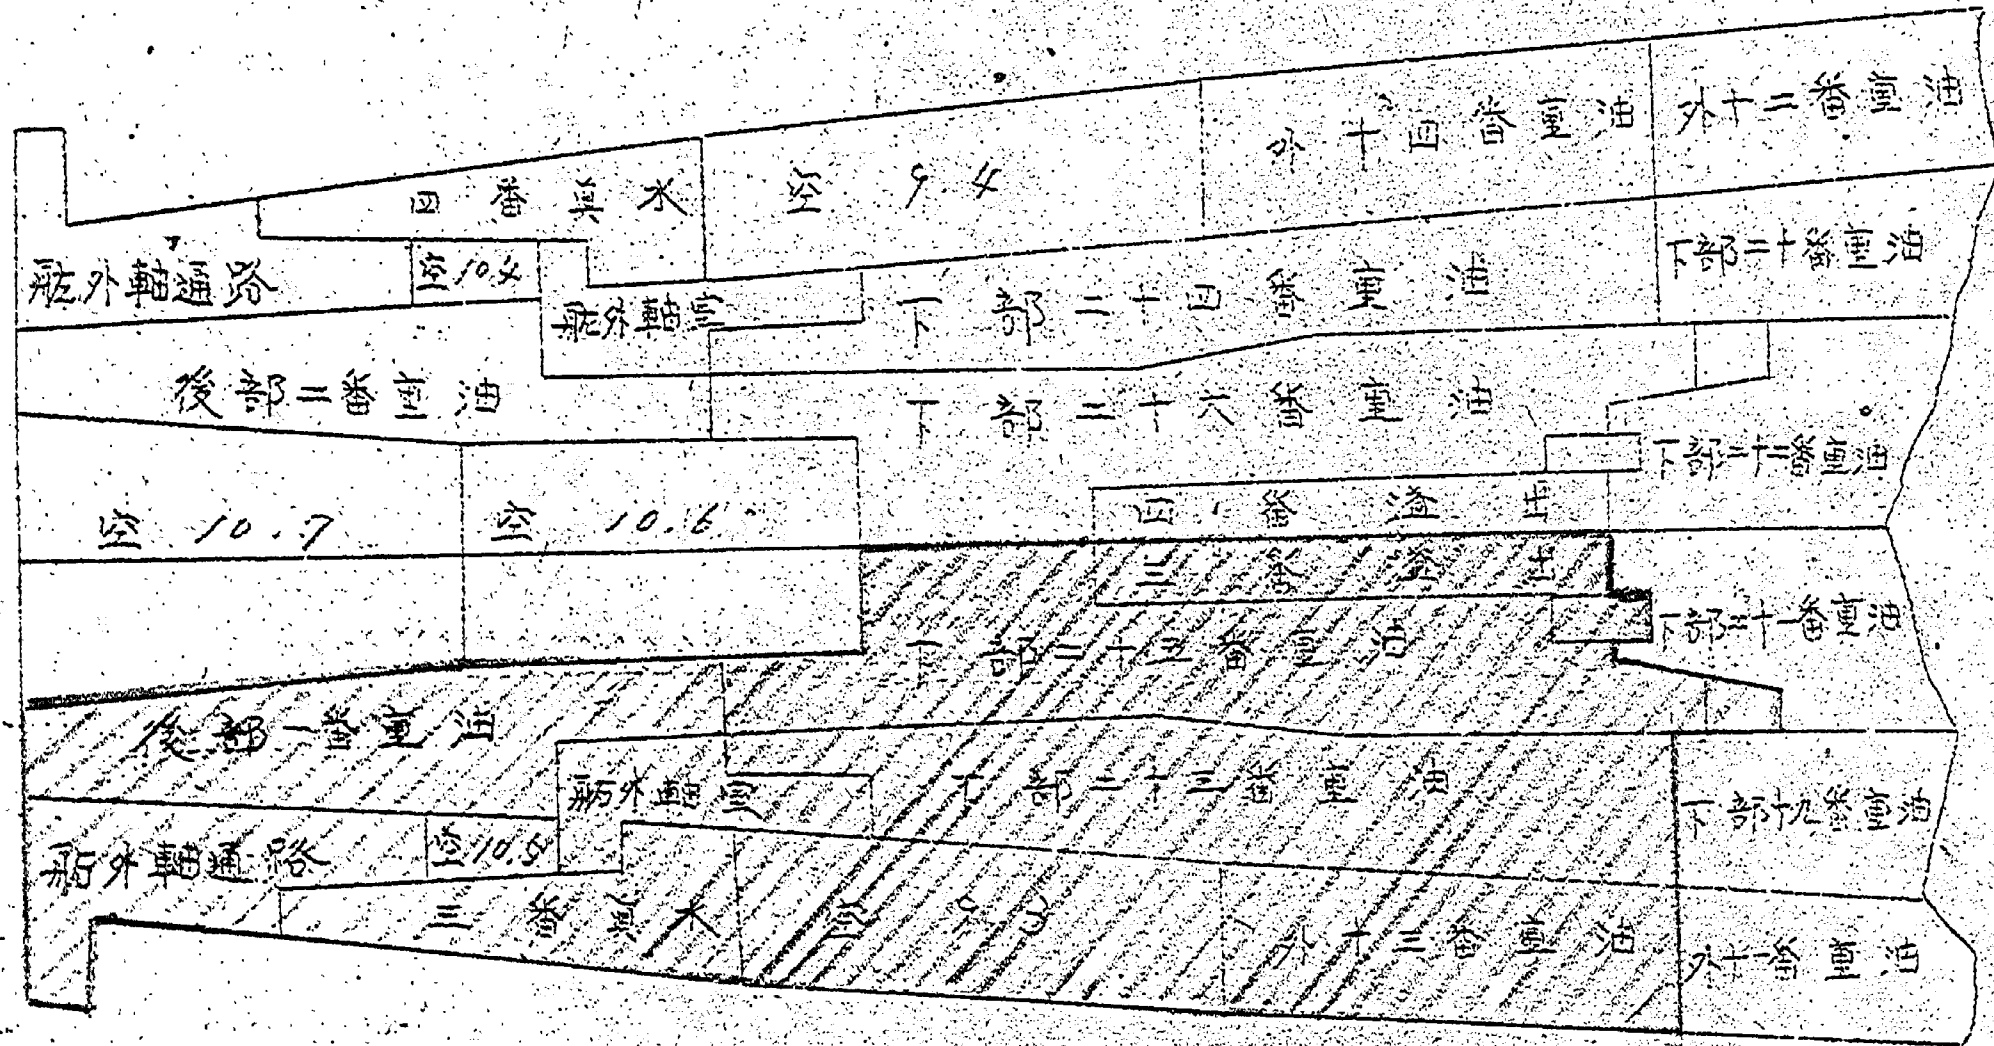 外十二番重油
外十四番重油
空 9.4
四番真水
下部二十番重油
下部二十四番重油
舷外軸通路
空10.4
舷外軸
後部二番重油
下部二十六番重油
下部二十二番重油
空 10.7
空 10.6
四番
三番
下部二十一番重油
下部二十五番重油
後部一番重油
舷外軸
下部二十三番重油
下部十九番重油
舷外軸通路
空10.5
三番真水
空
外十三番重油
外十一番重油